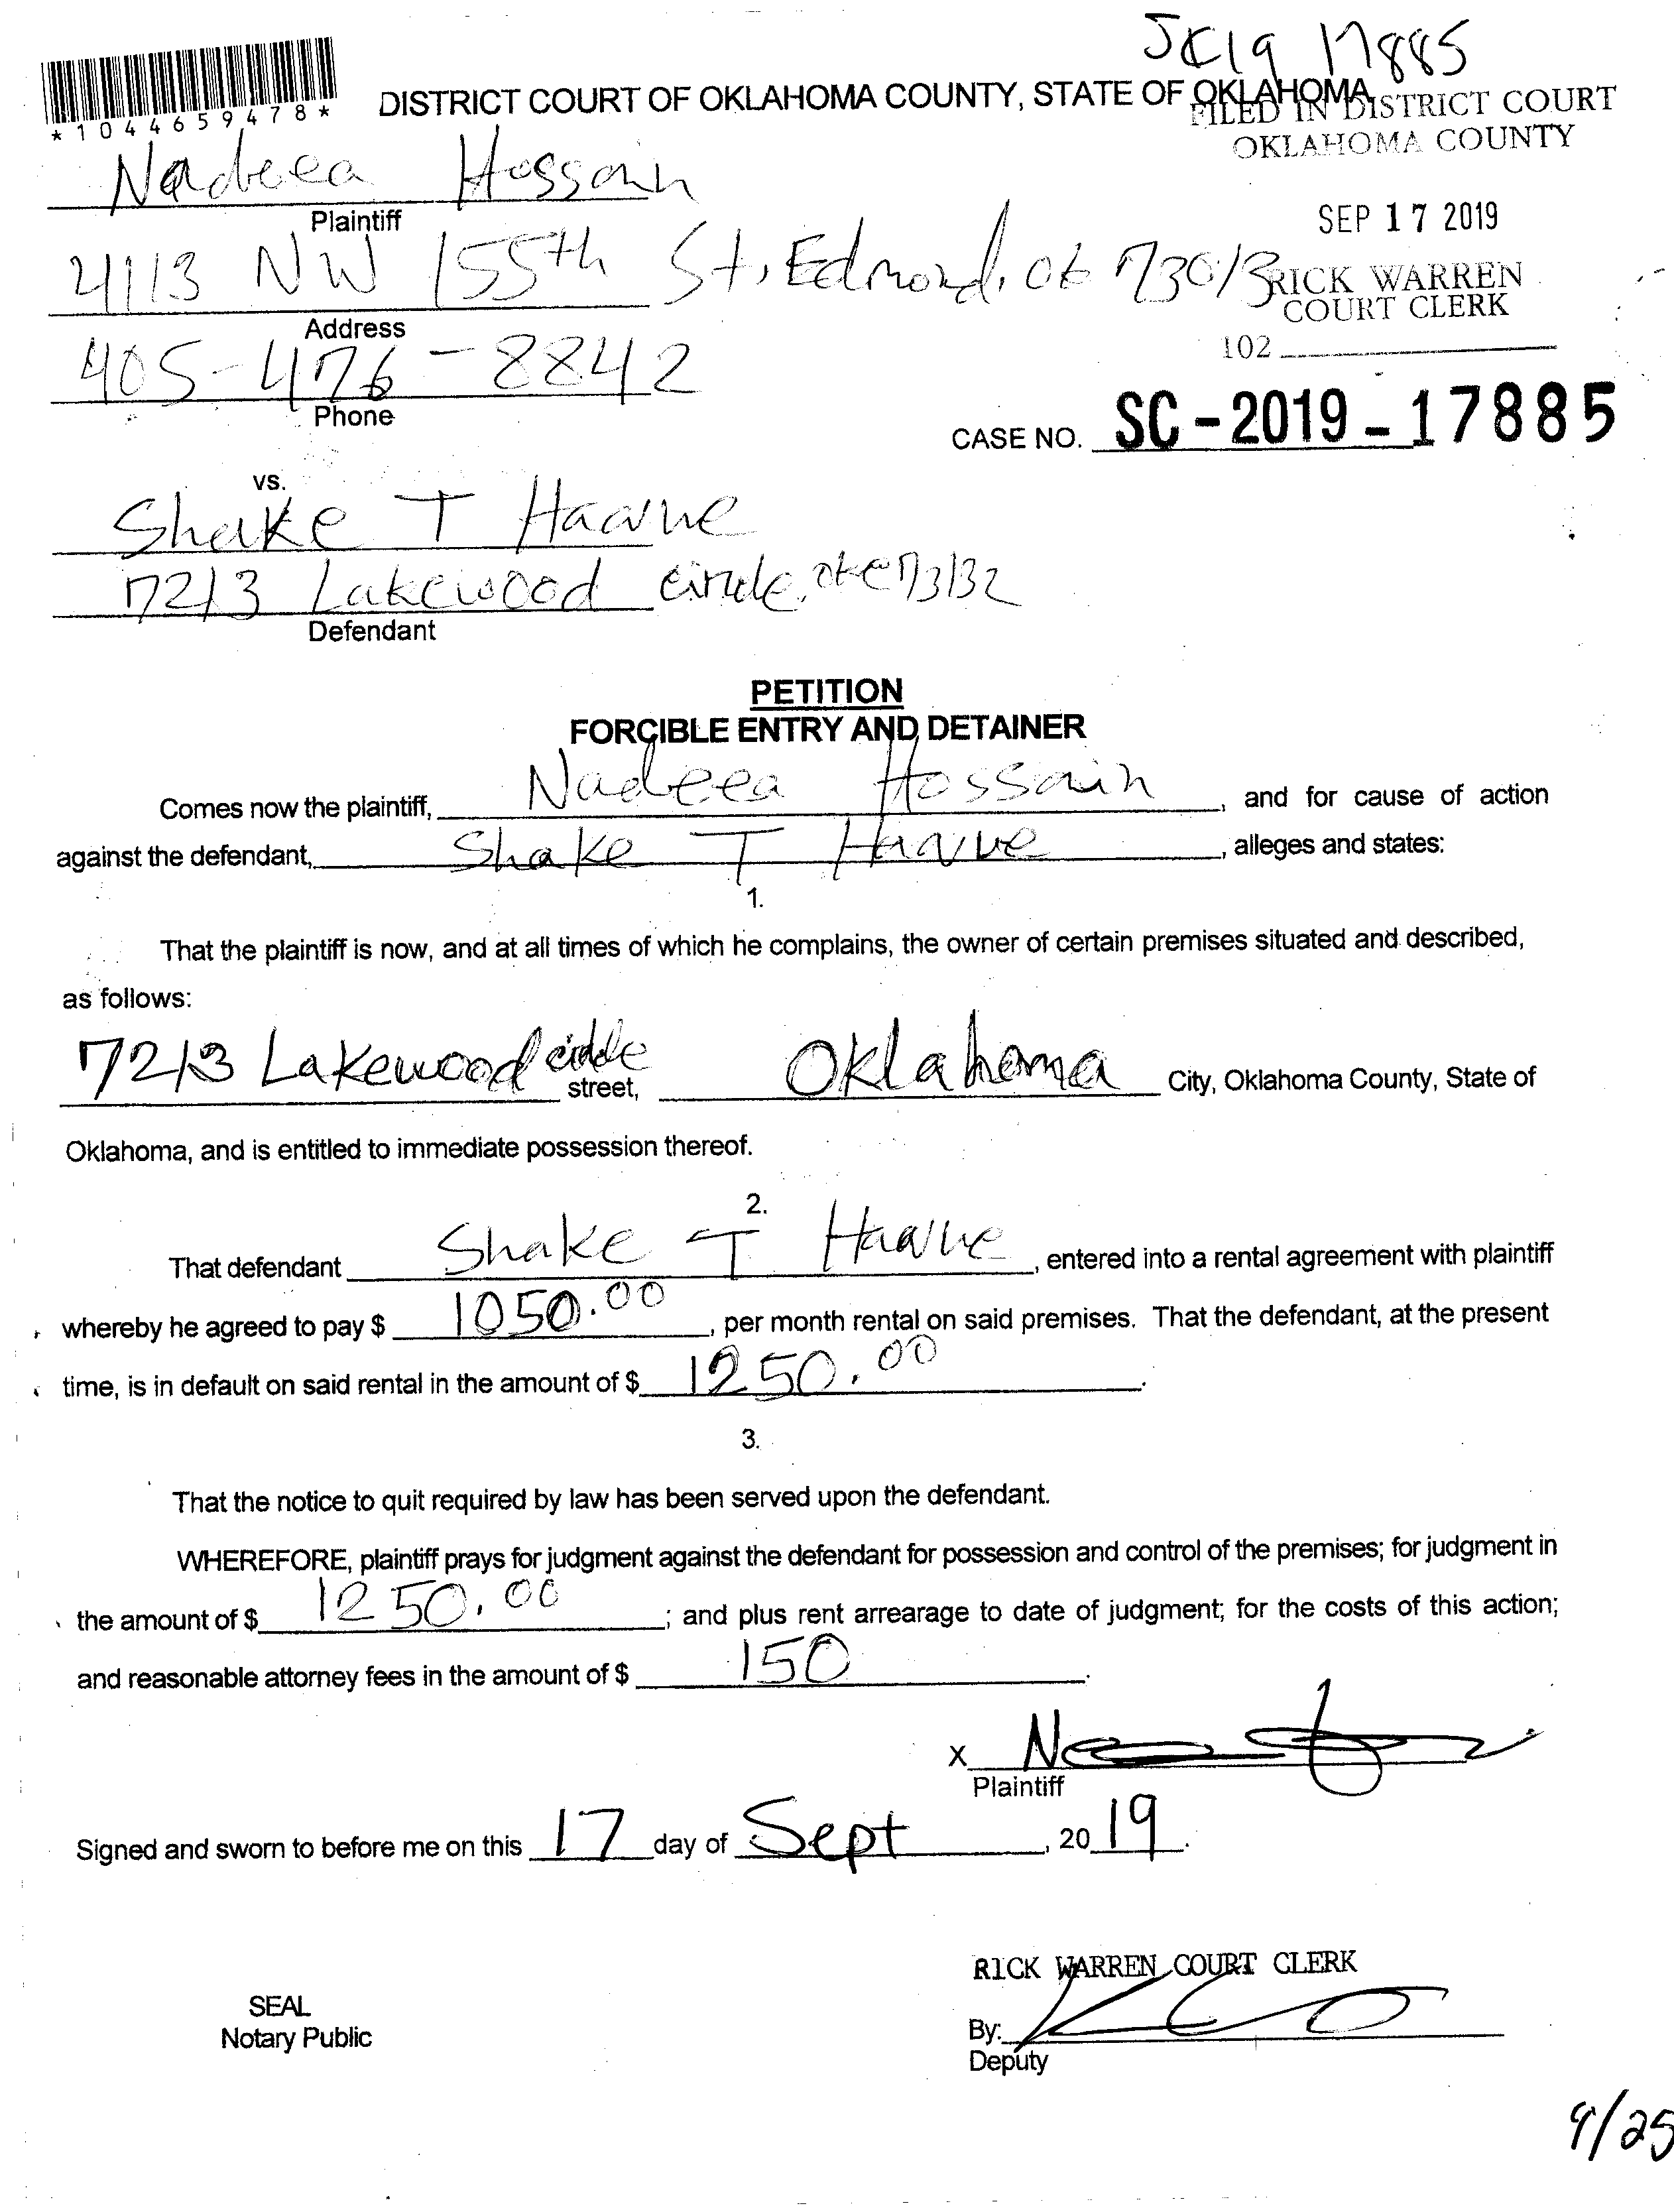 JC19 17885
*1044659478*
DISTRICT COURT OF OKLAHOMA COUNTY, STATE OF OKLAHOMA
FILED IN DISTRICT COURT
OKLAHOMA COUNTY
Nadeea Hossain
Plaintiff
SEP 17 2019
4113 NW 155th St, Edmond, OK 73013
RICK WARREN
COURT CLERK
Address
102
405-476-8842
Phone
CASE NO. SC-2019-17885
vs.
Shake T
7213 Lakewood circle, OKC 73132
Defendant
PETITION
FORCIBLE ENTRY AND DETAINER
Comes now the plaintiff, Nadeea Hossain, and for cause of action
against the defendant, Shake T, alleges and states:
1.
That the plaintiff is now, and at all times of which he complains, the owner of certain premises situated and described,
as follows:
7213 Lakewood circle street, Oklahoma City, Oklahoma County, State of
Oklahoma, and is entitled to immediate possession thereof.
2.
That defendant Shake T, entered into a rental agreement with plaintiff
whereby he agreed to pay $ 1050.00, per month rental on said premises. That the defendant, at the present
time, is in default on said rental in the amount of $ 1250.00.
3.
That the notice to quit required by law has been served upon the defendant.
WHEREFORE, plaintiff prays for judgment against the defendant for possession and control of the premises; for judgment in
the amount of $ 1250.00; and plus rent arrearage to date of judgment; for the costs of this action;
and reasonable attorney fees in the amount of $ 150.
X
Plaintiff
Signed and sworn to before me on this 17 day of Sept, 2019.
RICK WARREN COURT CLERK
SEAL
Notary Public
By:
Deputy
9/25